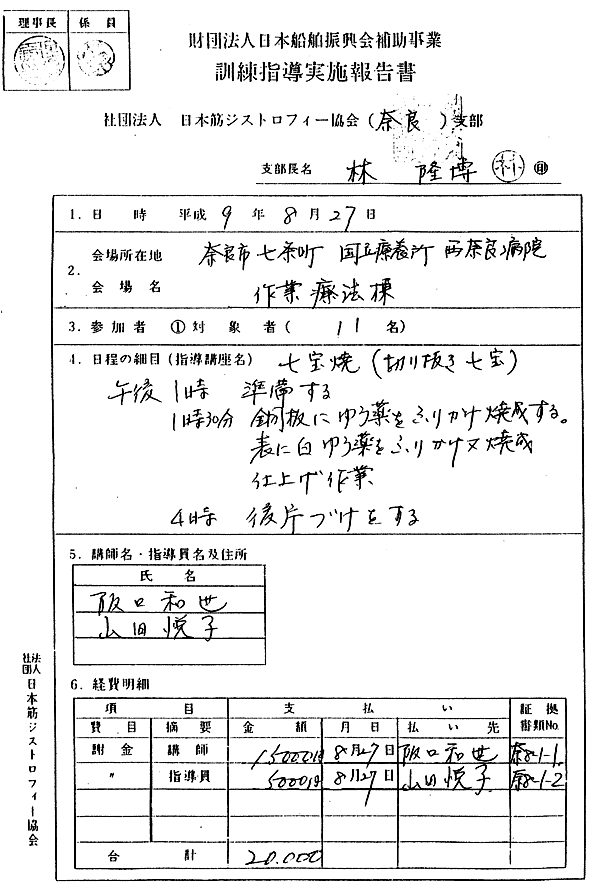 理事長 係員
財団法人日本船舶振興会補助事業
訓練指導実施報告書
社団法人 日本筋ジストロフィー協会(奈良 )支部
支部長名 林 隆博 ㊞
1.日 時 平成 9 年 8 月 27 日
2. 会場所在地 奈良市七条町 国立療養所 西奈良病院
会場名 作業療法棟
3.参加者 ①対象者( 11 名)
4.日程の細目(指導講座名) 七宝焼(切り抜き七宝)
午後 1時 準備する
1時30分 銅板にゆう薬をふりかけ焼成する。
表に白ゆう薬をふりかけ又焼成
仕上げ作業
4時 後片づけをする
5.講師名・指導員名及住所
氏 名
阪口和世
山田悦子
6.経費明細
項 目 支 払 い 証拠書類No.
費目 摘要 金額 月日 払い先
謝金 講師 15000円 8月27日 阪口和世 奈8-1-1
〃 指導員 5000円 8月27日 山田悦子 奈8-1-2
合 計 20.000
社団法人 日本筋ジストロフィー協会